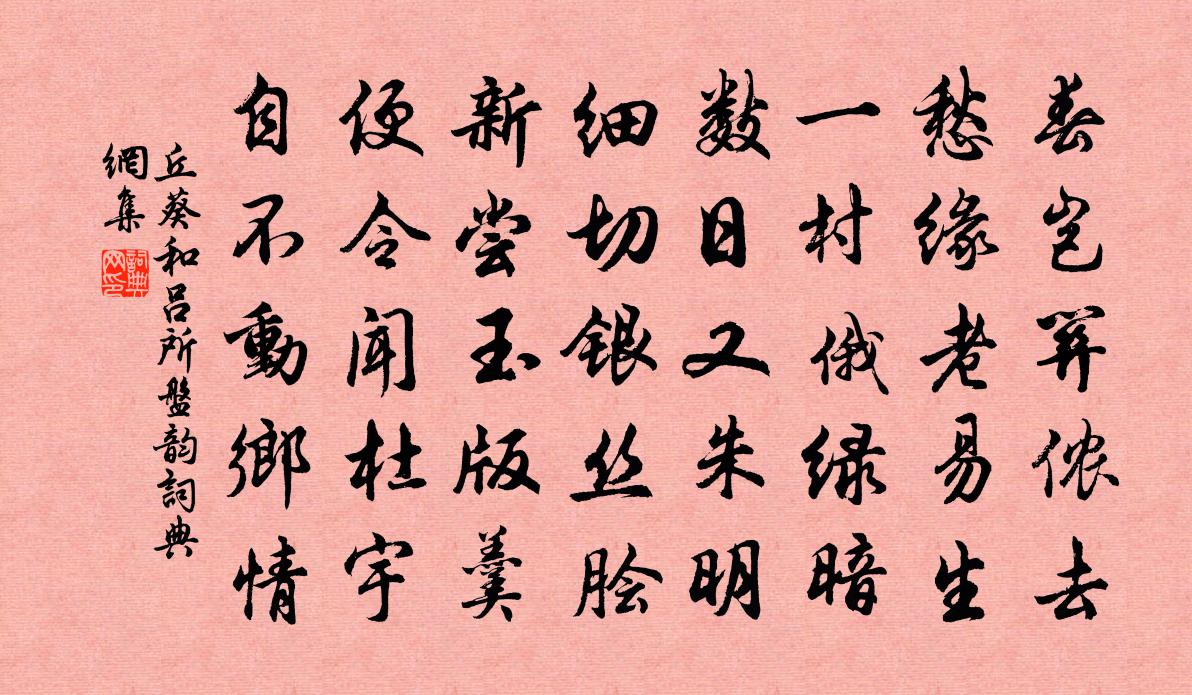 春岂弃侬去
愁缘老易生
一村俄绿暗
数日又朱明
细切银丝脍
新尝玉版羹
便令闻杜宇
自不動鄉情
丘葵和吕所盤韵詞典
網集
詞典网印